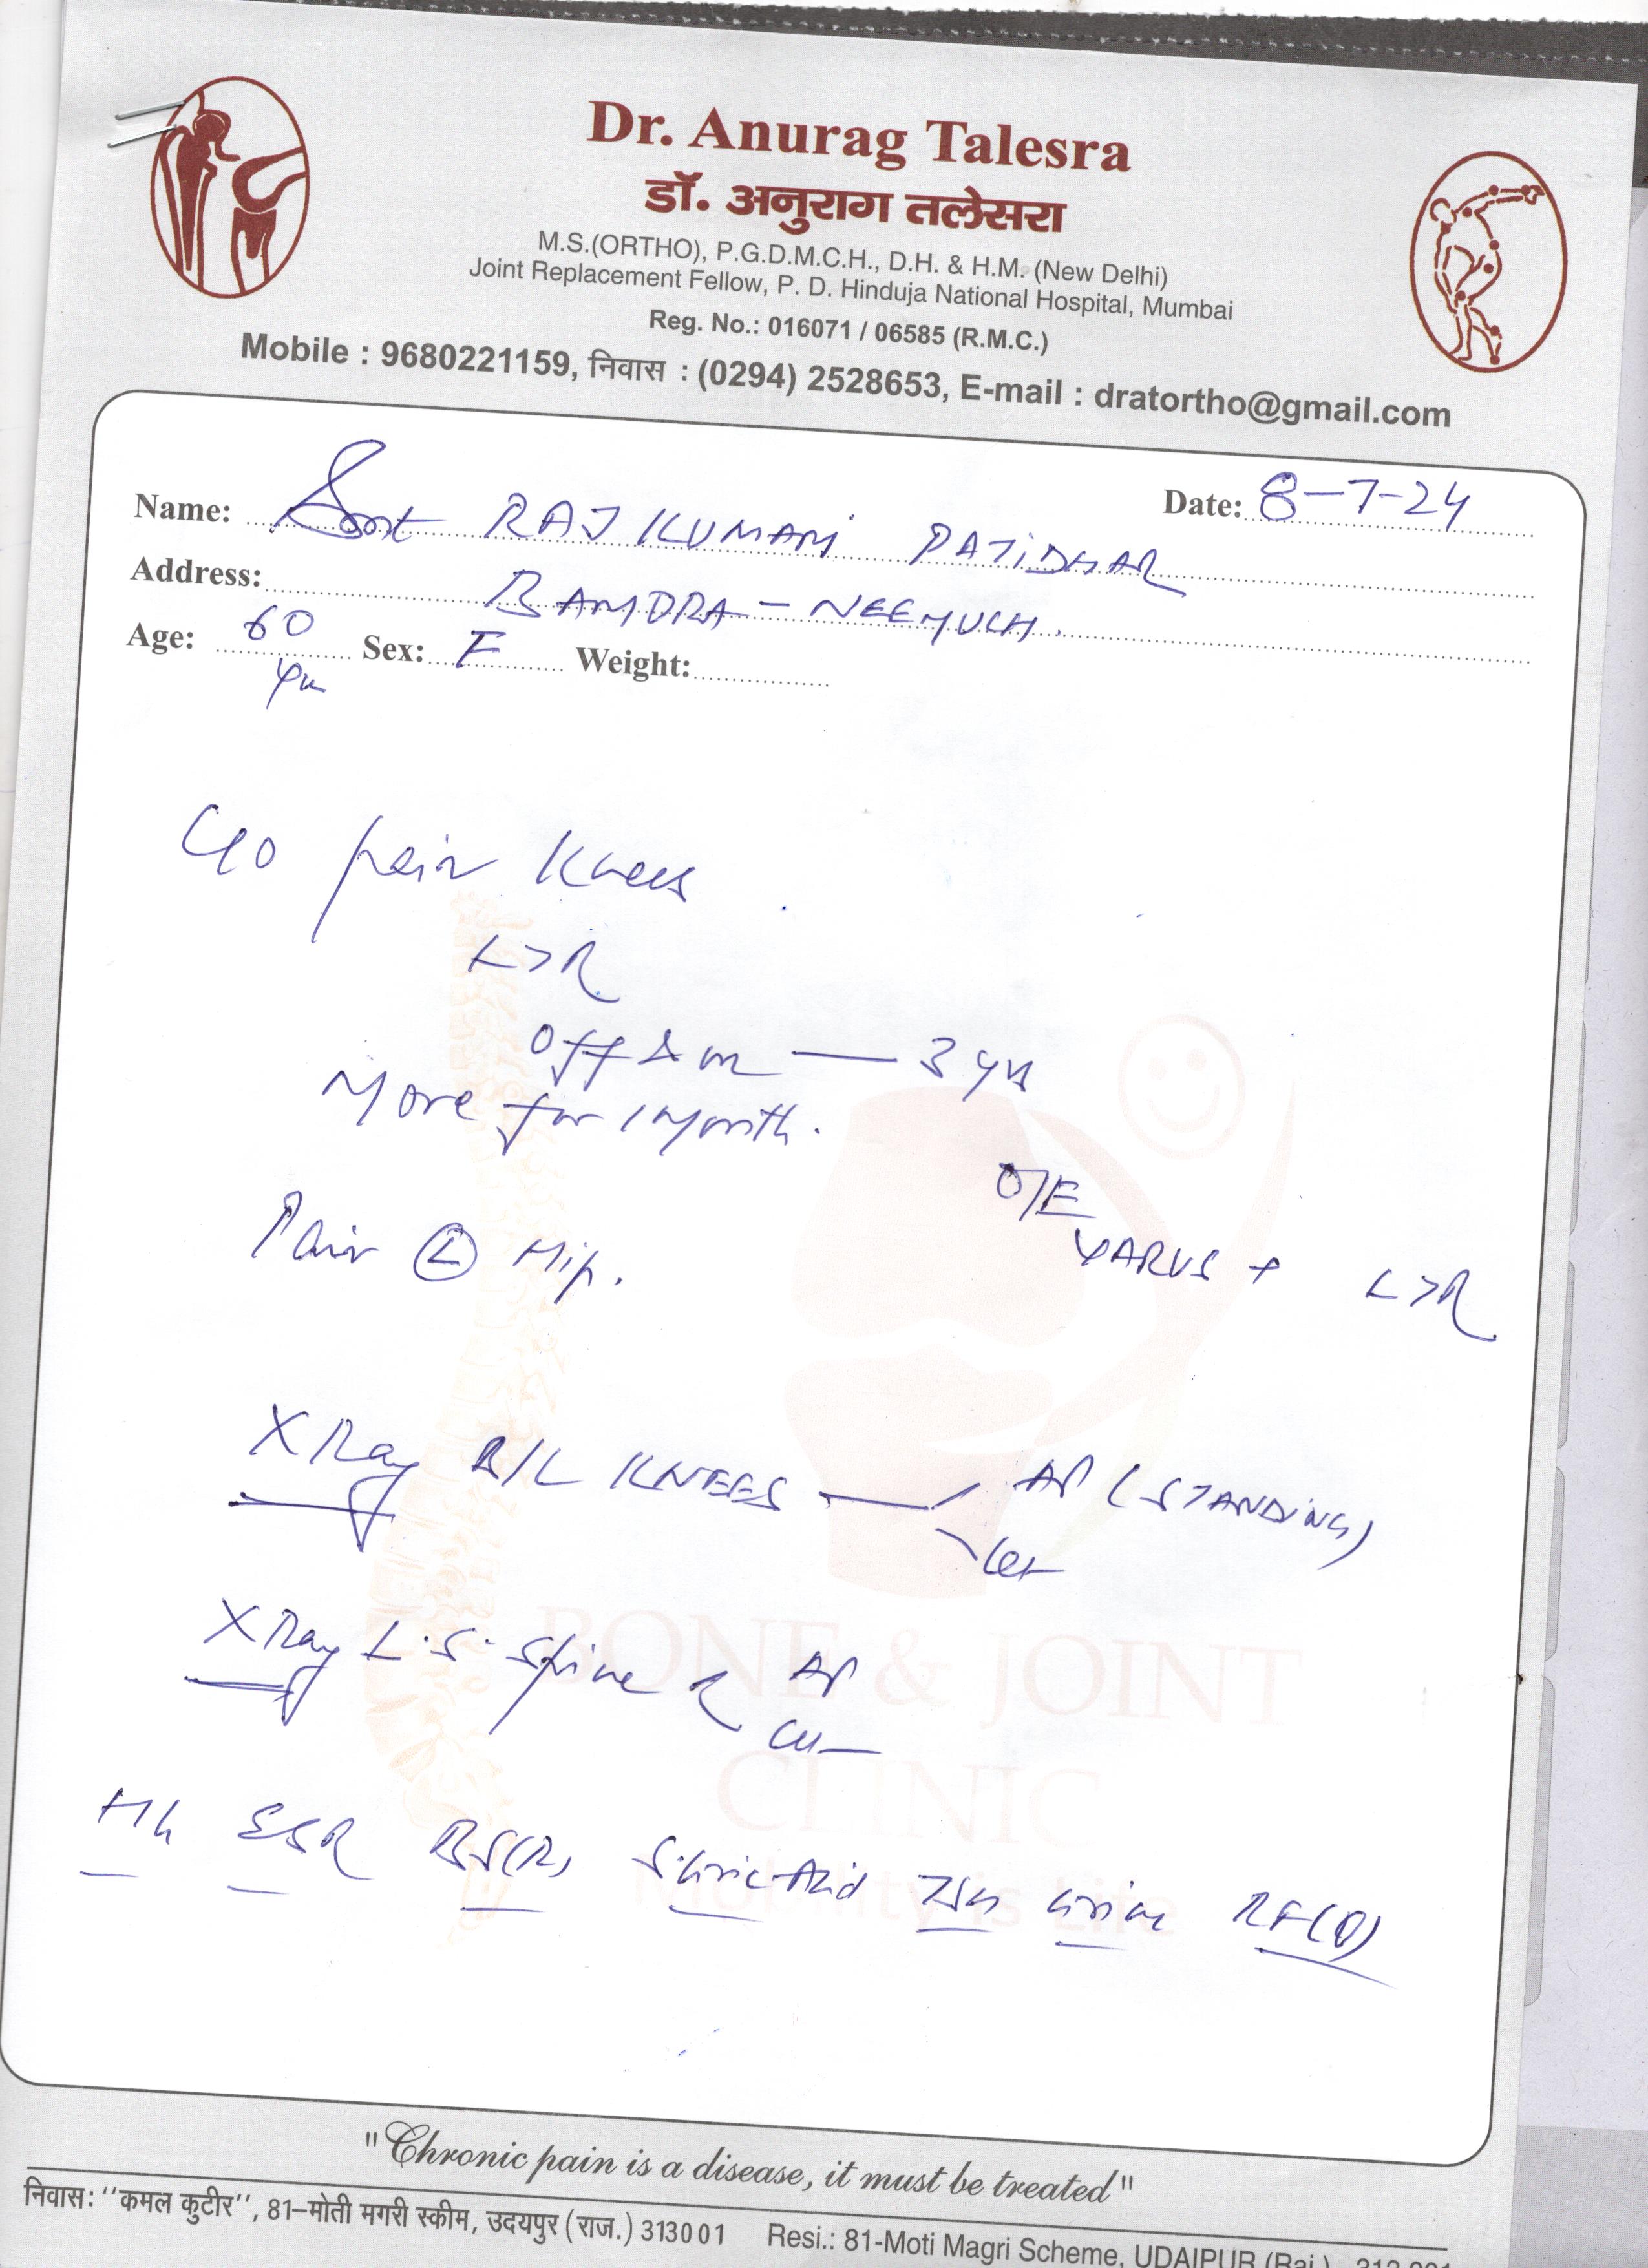 Dr. Anurag Talesra
डॉ. अनुराग तलेसरा
M.S.(ORTHO), P.G.D.M.C.H., D.H. & H.M. (New Delhi)
Joint Replacement Fellow, P. D. Hinduja National Hospital, Mumbai
Reg. No.: 016071 / 06585 (R.M.C.)
Mobile : 9680221159, निवास : (0294) 2528653, E-mail : dratortho@gmail.com
Name: Smt RAJKUMARI PATIDHAR Date: 8-7-24
Address: BAMORA - NEEMUCH.
Age: 60 Sex: F Weight:
C/O pain Knees
L>R
Off & on — 3 yrs
More for 1 Month.
O/E
Pain Ⓛ Hip.
VARUS + L>R
X Ray B/L KNEES — AP (STANDING)
Lat
X Ray L.S. Spine AP
Lat
BONE & JOINT
CLINIC
Hb ESR BS(R) S.Uric Acid TSH Urine RF(Q)
"Chronic pain is a disease, it must be treated"
निवास: ''कमल कुटीर'', 81-मोती मगरी स्कीम, उदयपुर (राज.) 313001 Resi.: 81-Moti Magri Scheme, UDAIPUR (Raj.)